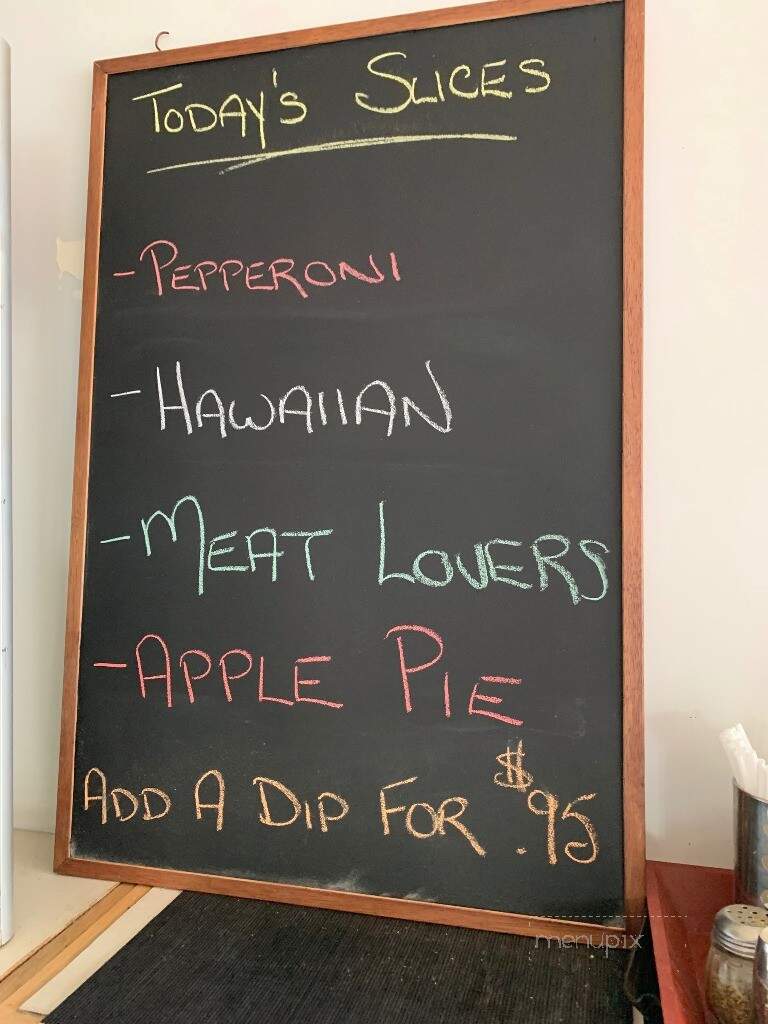 TODAY'S SLICES
- PEPPERONI
- HAWAIIAN
- MEAT LOVERS
- APPLE PIE
ADD A DIP FOR $.95
menupix